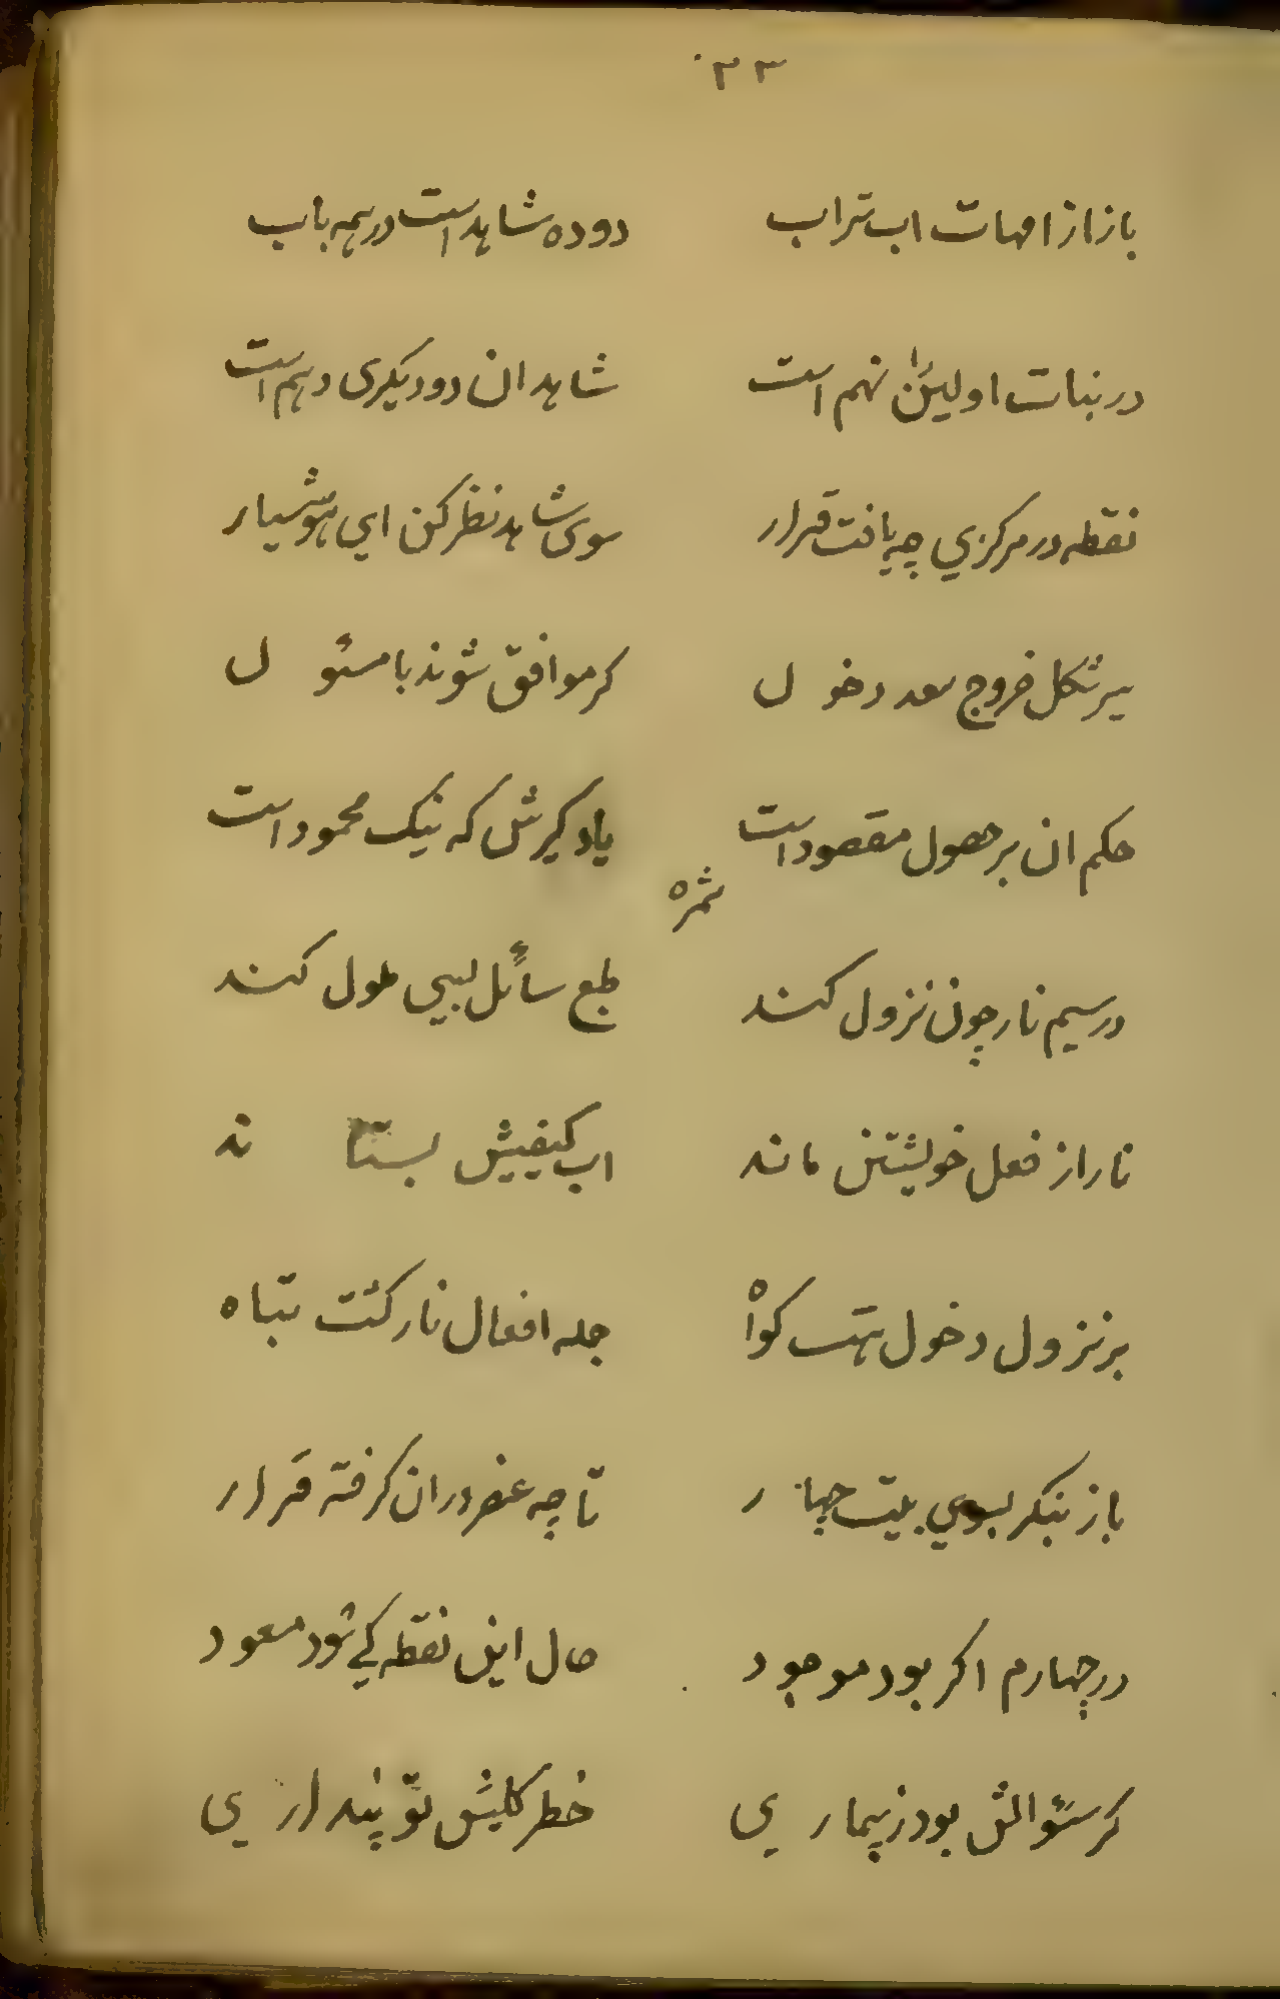 ۲۳۰
باز از امهات اب تراب دو ده شاهد است در همه باب
در بنات اولین نهم است شاهد ان دو دیکری دهم است
نقطه در مرکزی چه یافت قرار سوی شاهد نظر کن ای هوشیار
شکل خروج سعد دخول کر موافق شوند با مسئول
حکم ان بر حصول مقصود است یاد کیرش که نیک محمود است
ثمره
در سیم نار چون نزول کند طبع سائل بسی ملول کند
نار از فعل خویشتن ماند اب کیفیش بستاند
بر نزول دخول هست کواه جمله افعال نار کشت تباه
باز بنکر بسوی بیت چهار تا چه عنصر دران کرفته قرار
در چهارم اکر بود موجود حال این نقطه کے شود مسعود
کر سئوالش بود ز بیماری خطر کلیش تو پنداری